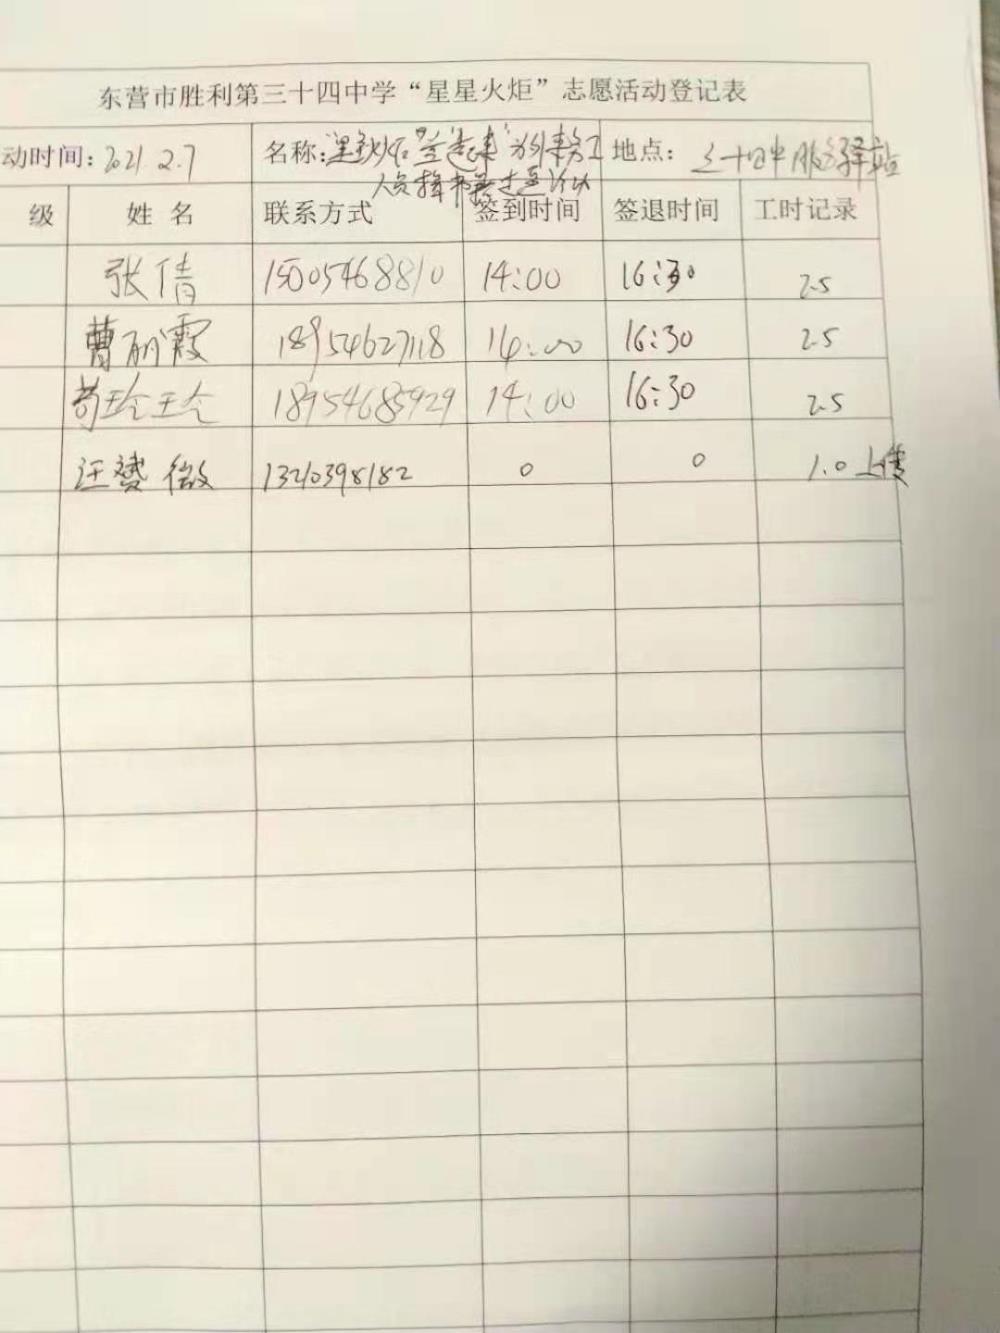 东营市胜利第三十四中学“星星火炬”志愿活动登记表
动时间：2021.2.7 名称： 为外来务工 地点：三十四中服务驿站
人员
级 姓名 联系方式 签到时间 签退时间 工时记录
张倩 15005468810 14:00 16:30 2.5
曹丽霞 18954627118 14:00 16:30 2.5
苟玲玲 18954685929 14:00 16:30 2.5
汪 微 13210398182 0 0 1.0 上传